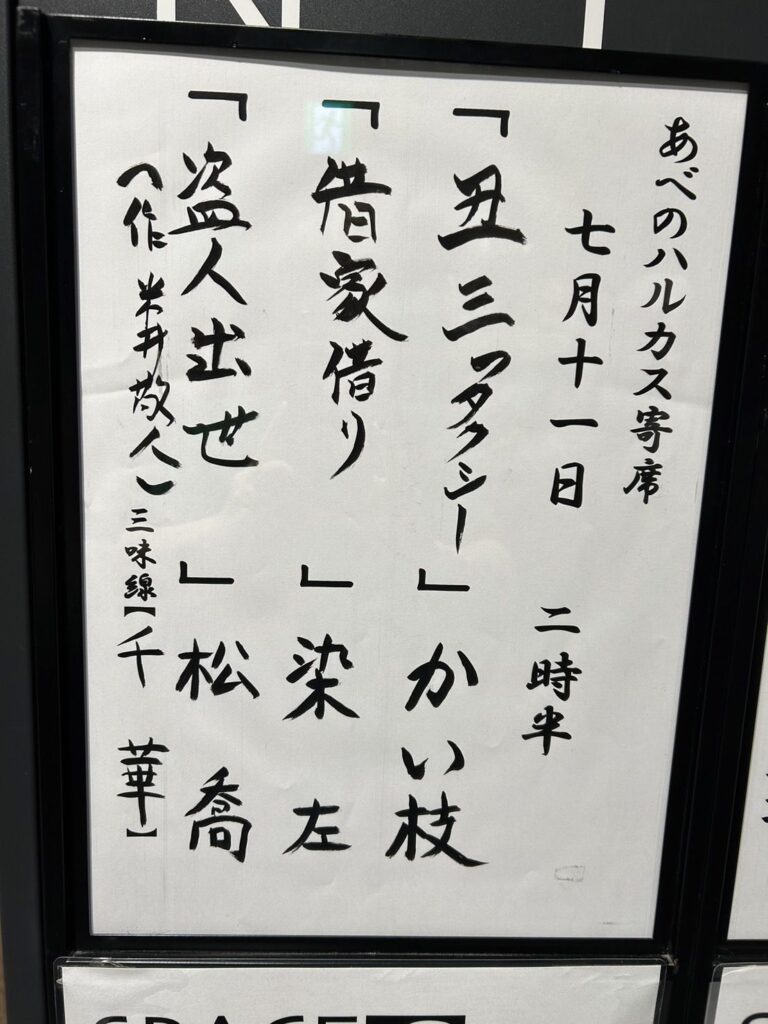 あべのハルカス寄席
七月十一日 二時半
「丑三つタクシー」かい枝
「借家借り」染左
「盗人出世」松喬
(作 米井敬人) 三味線【千華】